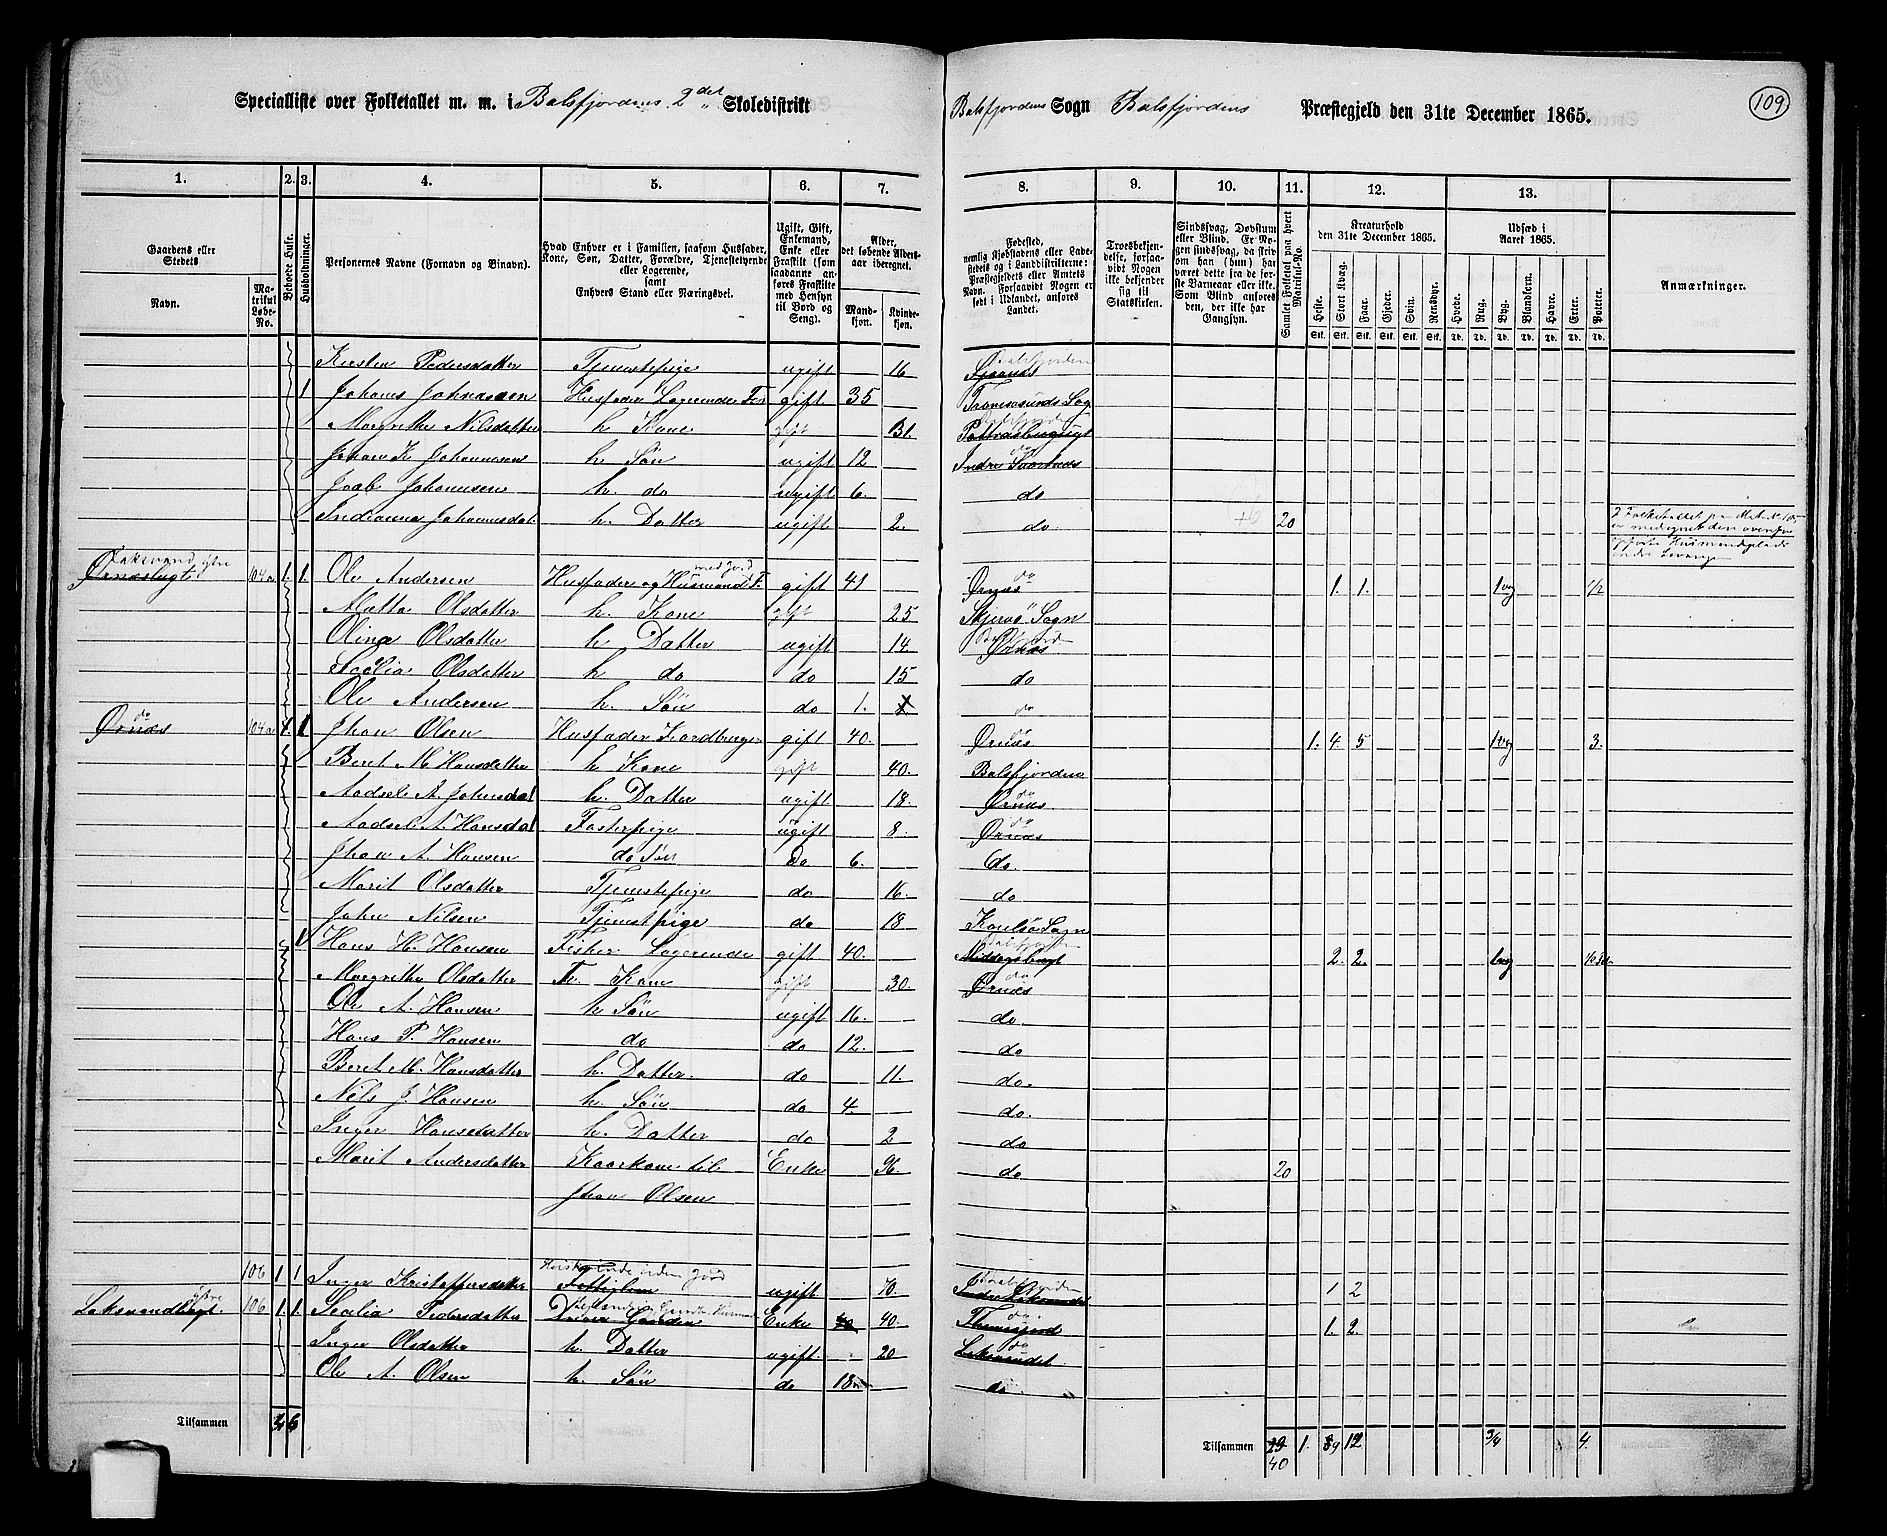 109
Specialliste over Folketallet m. m. i Balsfjordens 2det Skoledistrikt Balsfjordens Sogn Balsfjordens Præstegjeld den 31te December 1865.
1. 2. 3. 4. 5. 6. 7. 8. 9. 10. 11. 12. 13.
Gaardens eller Stedets
Navn.
Matrikul Løbe-No.
Beboede Huse.
Husholdninger.
Personernes Navne (Fornavn og Binavn).
Hvad Enhver er i Familien, saasom Husfader, Kone, Søn, Datter, Forældre, Tjenestetyende eller Logerende, samt Enhvers Stand eller Næringsvei.
Ugift, Gift, Enkemand, Enke eller Fraskilt (som saadanne anføres Fraskilte med Hensyn til Bord og Seng).
Alder, det løbende Aldersaar iberegnet.
Mandkjøn. Kvindekjøn.
Fødested, nemlig Kjøbstadens eller Ladestedets og i Landdistrikterne: Præstegjeldets eller Amtets Navn. Forsaavidt Nogen er født i Udlandet, anføres Landet.
Troesbekjendelse, forsaavidt Nogen ikke bekjender sig til Statskirken.
Sindssvag, Døvstum eller Blind. Er Nogen sindssvag, da skrives om han (hun) har været dette fra de første Barneaar eller ikke. Som Blind anføres den, der ikke har Gangsyn.
Samlet Folketal paa hvert Matrikul-No.
Kreaturhold den 31te December 1865.
Heste. Stort Kvæg. Faar. Gjeder. Svin. Rensdyr.
Udsæd i Aaret 1865.
Hvede. Rug. Byg. Blandkorn. Havre. Erter. Poteter.
Anmærkninger.
Kirsten Pedersdatter Tjenestepige ugift 16 Balsfjorden
1 Johans Johnasen Husfader Logerende gift 35 Tromsøsunds Sogn
Margrethe Nilsdatter h. Kone gift 31. Balsfjorden
Johan K Johannesen h. Søn ugift 12 do
Joab Johannesen h. do ugift 6. do
Indianna Johannesdat. h. Datter ugift 2. do 20
Laksvand ytre Ørnæsbugt 104a 1. 1. Ole Andersen Husfader og Husmand med Jord F. gift 41 Ørnæs do 1. 1. 1 vog 1/2
Matta Olsdatter h. Kone gift 25 Skjervö Sogn
Olina Olsdatter h. Datter ugift 14. Ørnæs
Olsdatter h do do 15 do
Ole Andersen h. Søn do 1. do
Ørnæs do 104a 1 Jhan Olsen Husfader Jordbruger gift 40. Ørnæs 1. 4. 5 3.
Beret M Hansdatter h Kone gift 40. Balsfjorden
Aadsel A. Johnsdat h. Datter ugift 18. Ørnæs do
Aadsel A Hansdat Fosterpige ugift 8. Ørnæs do
Jhan A. Hansen do Søn Do 6. do.
Marit Olsdatter Tjenestepige do 16. do
John Nilsen Tjenstpige do 18 Karlsø Sogn
1 Hans H. Hansen Fisker Logerende gift 40. Balsfjorden 2. 2.
Margrethe Olsdatter Kone gift 30. Ørnæs do
Ole A. Hansen h Søn ugift 16. do.
Hans P. Hansen do do 12. do
Beret M. Hansdatter h. Datter. do 11. do.
Nils J. Hansen h. Søn do 4 do.
Inger Hansdatter h. Datter do 2 do
Marit Andersdatter Kaarkone til Enke 96. do 20
Jhan Olsen
106 1 1 Inger Kristoffersdatter ugift 70. Balsfjorden 1 2
Laksvandbugt ytre 106 1. 1. Pedersdatter Enke 40. do 1. 2.
Inger Olsdatter h. Datter ugift. 20 Laksvandet. do
Ole A. Olsen h. Søn do 18 do
Tilsammen 6 Tilsammen 40 1. 9 12 3/4 4.